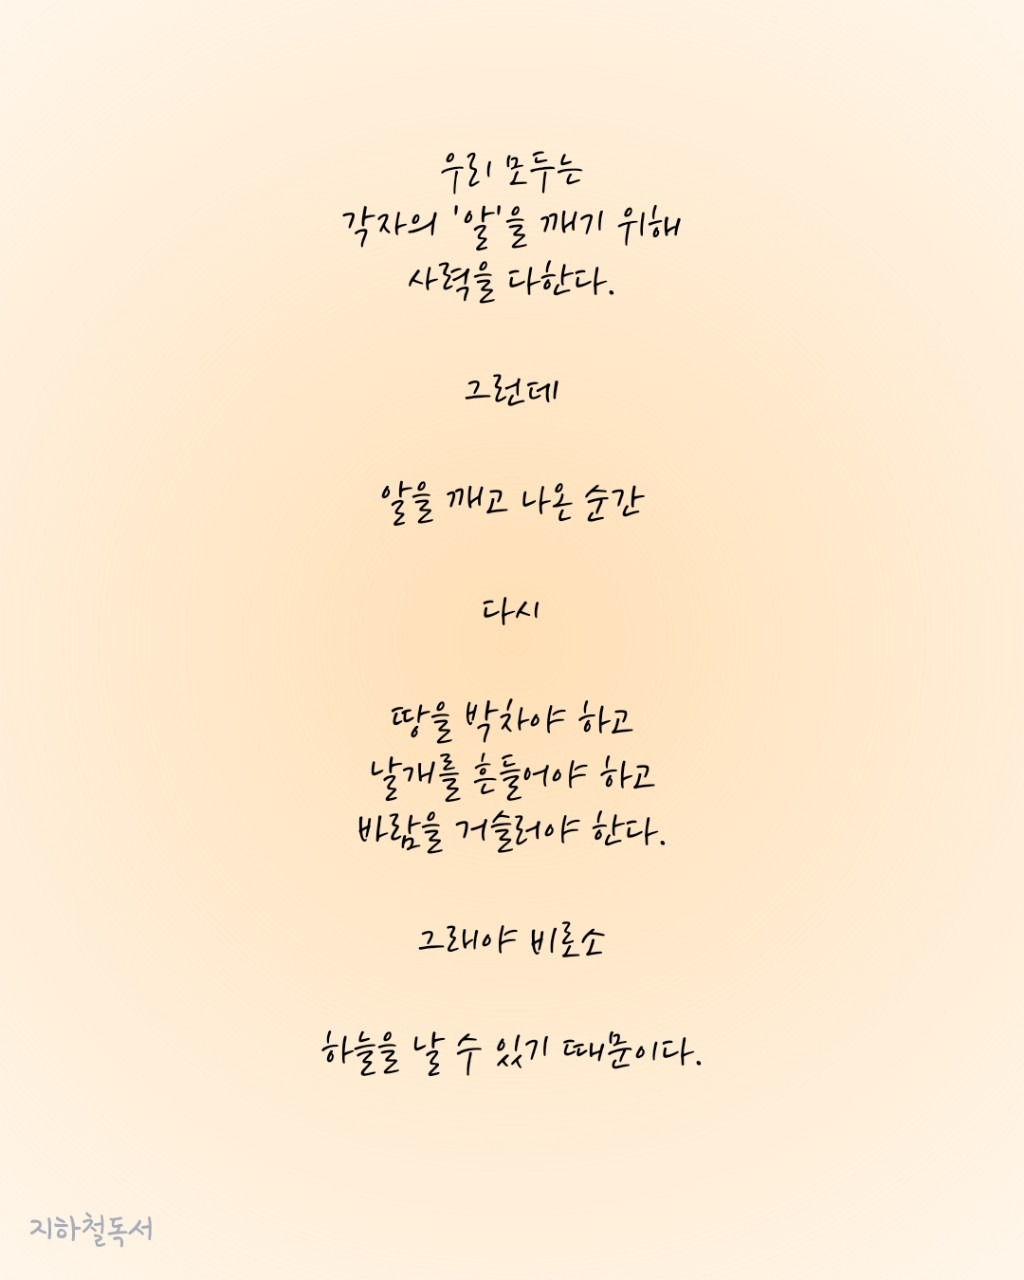 우리 모두는
각자의 '알'을 깨기 위해
사력을 다한다.
그런데
알을 깨고 나온 순간
다시
땅을 박차야 하고
날개를 흔들어야 하고
바람을 거슬러야 한다.
그래야 비로소
하늘을 날 수 있기 때문이다.
지하철독서